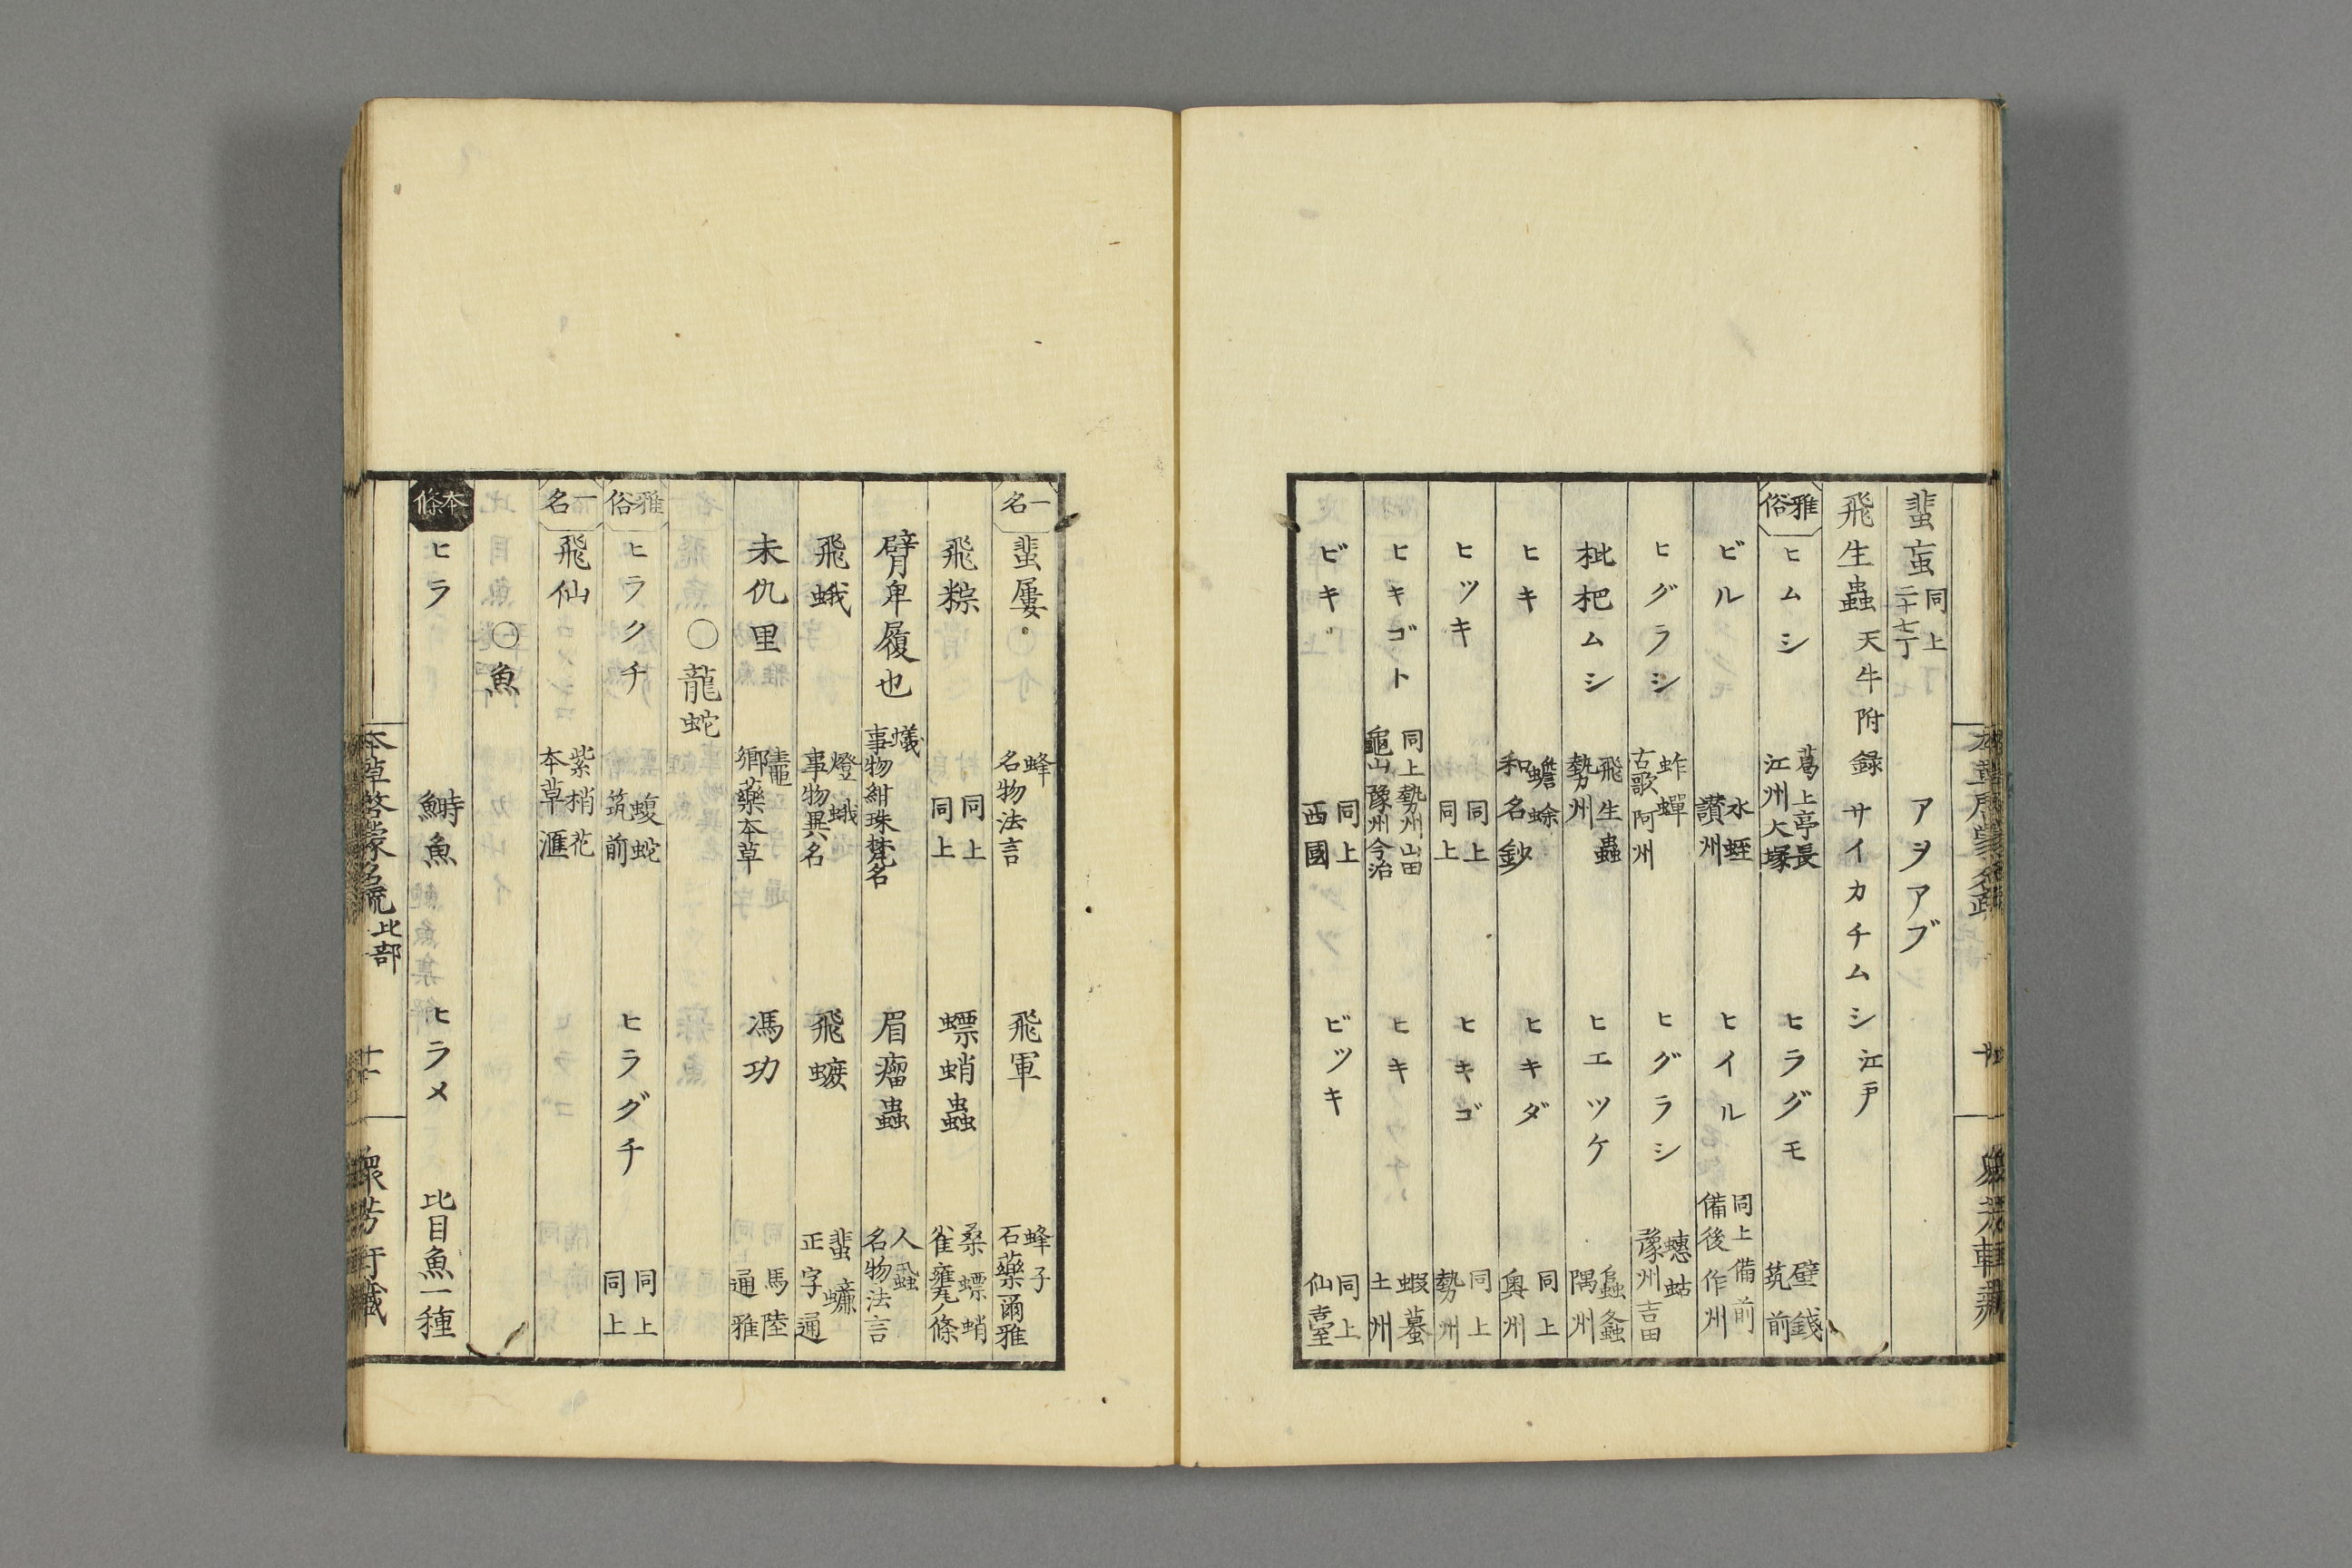 蜚䖟 同上 二十七丁 アヲアブ
飛生蟲 天牛附録 サイカチムシ 江戸
雅俗 ヒムシ 葛上亭長 江州大塚 ヒラグモ 壁錢 筑前
ビル 水蛭 讃州 ヒイル 同上 備前 備後 作州
ヒグラシ 蚱蟬 古歌 阿州 ヒグラシ 蟪蛄 豫州吉田
枇杷ムシ 飛生蟲 勢州 ヒエツケ 蝨螽 隅州
ヒキ 蟾蜍 和名鈔 ヒキダ 同上 奥州
ヒツキ 同上 同上 ヒキゴ 同上 勢州
ヒキゴト 同上 勢州山田 龜山 豫州今治 ヒキ 蝦蟇 土州
ビキ 同上 西國 ビツキ 同上 仙臺
一名 蜚屢 蜂 名物法言 飛軍 蜂子 石藥爾雅
飛粽 同上 同上 螵蛸蟲 桑螵蛸 雀甕ノ條
臂卑履也 蟻 事物紺珠梵名 眉瘤蟲 人蝨 名物法言
飛蛾 燈蛾 事物異名 飛蠊 蜚蠊 正字通
未仇里 鼃 鄉藥本草 馮功 馬陸 通雅
〇龍蛇
雅俗 ヒラクチ 蝮蛇 筑前 ヒラグチ 同上 同上
一名 飛仙 紫梢花 本草滙
〇魚
本條 ヒラ 鰣魚 ヒラメ 比目魚一種
本草啓蒙名疏 比部 衆芳軒藏